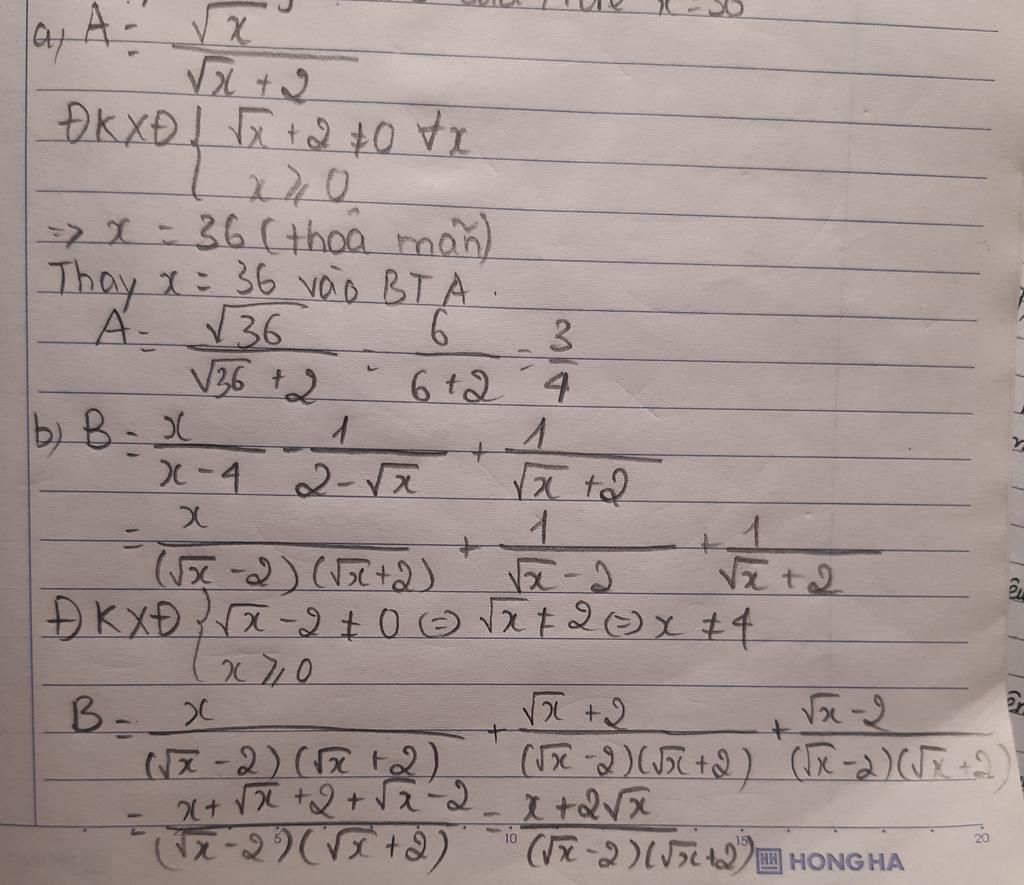 x = 36
a, A = √x / (√x + 2)
ĐKXĐ { √x + 2 ≠ 0 ∀x
x ⩾ 0
=> x = 36 (thoả mãn)
Thay x = 36 vào BT A.
A = √36 / (√36 + 2) = 6 / (6 + 2) = 3/4
b) B = x / (x - 4) - 1 / (2 - √x) + 1 / (√x + 2)
= x / ((√x - 2)(√x + 2)) + 1 / (√x - 2) + 1 / (√x + 2)
ĐKXĐ { √x - 2 ≠ 0 (=) √x ≠ 2 (=) x ≠ 4
x ⩾ 0
B = x / ((√x - 2)(√x + 2)) + (√x + 2) / ((√x - 2)(√x + 2)) + (√x - 2) / ((√x - 2)(√x + 2))
= (x + √x + 2 + √x - 2) / ((√x - 2)(√x + 2)) = (x + 2√x) / ((√x - 2)(√x + 2))
5 10 15 20
HH HONG HA